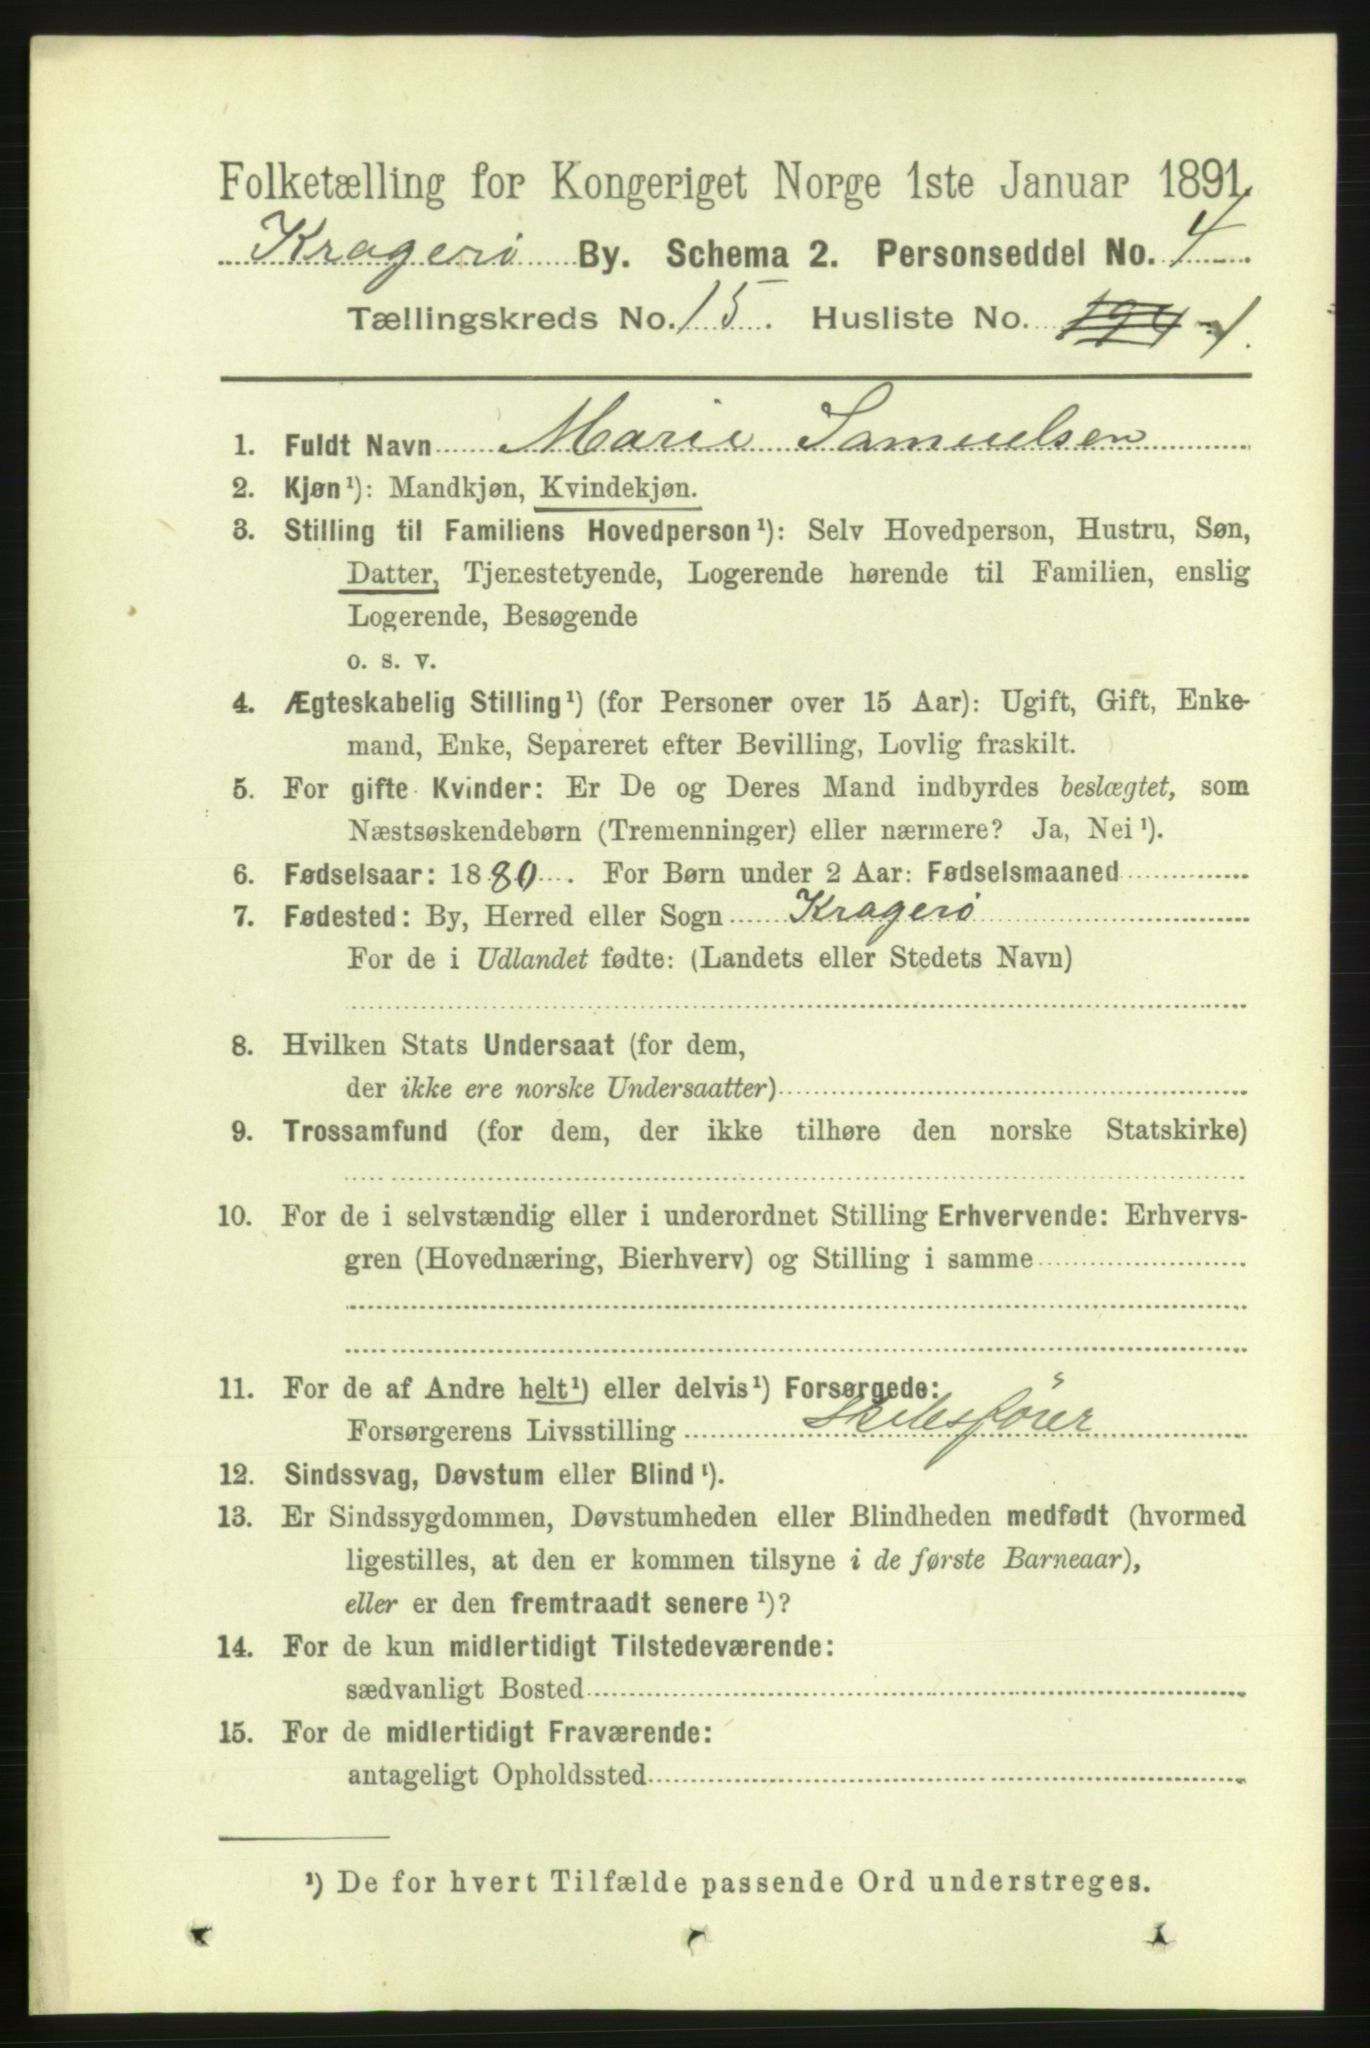 Folketælling for Kongeriget Norge 1ste Januar 1891.
Kragerö By. Schema 2. Personseddel No. 4
Tællingskreds No. 15. Husliste No. 1.
1. Fuldt Navn Marie Samuelsen
2. Kjøn¹): Mandkjøn, Kvindekjøn.
3. Stilling til Familiens Hovedperson¹): Selv Hovedperson, Hustru, Søn,
Datter, Tjenestetyende, Logerende hørende til Familien, enslig
Logerende, Besøgende
o. s. v.
4. Ægteskabelig Stilling¹) (for Personer over 15 Aar): Ugift, Gift, Enke-
mand, Enke, Separeret efter Bevilling, Lovlig fraskilt.
5. For gifte Kvinder: Er De og Deres Mand indbyrdes beslægtet, som
Næstsøskendebørn (Tremenninger) eller nærmere? Ja, Nei¹).
6. Fødselsaar: 1880. For Børn under 2 Aar: Fødselsmaaned
7. Fødested: By, Herred eller Sogn Kragerö
For de i Udlandet fødte: (Landets eller Stedets Navn)
8. Hvilken Stats Undersaat (for dem,
der ikke ere norske Undersaatter)
9. Trossamfund (for dem, der ikke tilhøre den norske Statskirke)
10. For de i selvstændig eller i underordnet Stilling Erhvervende: Erhvervs-
gren (Hovednæring, Bierhverv) og Stilling i samme
11. For de af Andre helt¹) eller delvis¹) Forsørgede:
Forsørgerens Livsstilling Skibsförer
12. Sindssvag, Døvstum eller Blind¹).
13. Er Sindssygdommen, Døvstumheden eller Blindheden medfødt (hvormed
ligestilles, at den er kommen tilsyne i de første Barneaar),
eller er den fremtraadt senere¹)?
14. For de kun midlertidigt Tilstedeværende:
sædvanligt Bosted
15. For de midlertidigt Fraværende:
antageligt Opholdssted
¹) De for hvert Tilfælde passende Ord understreges.